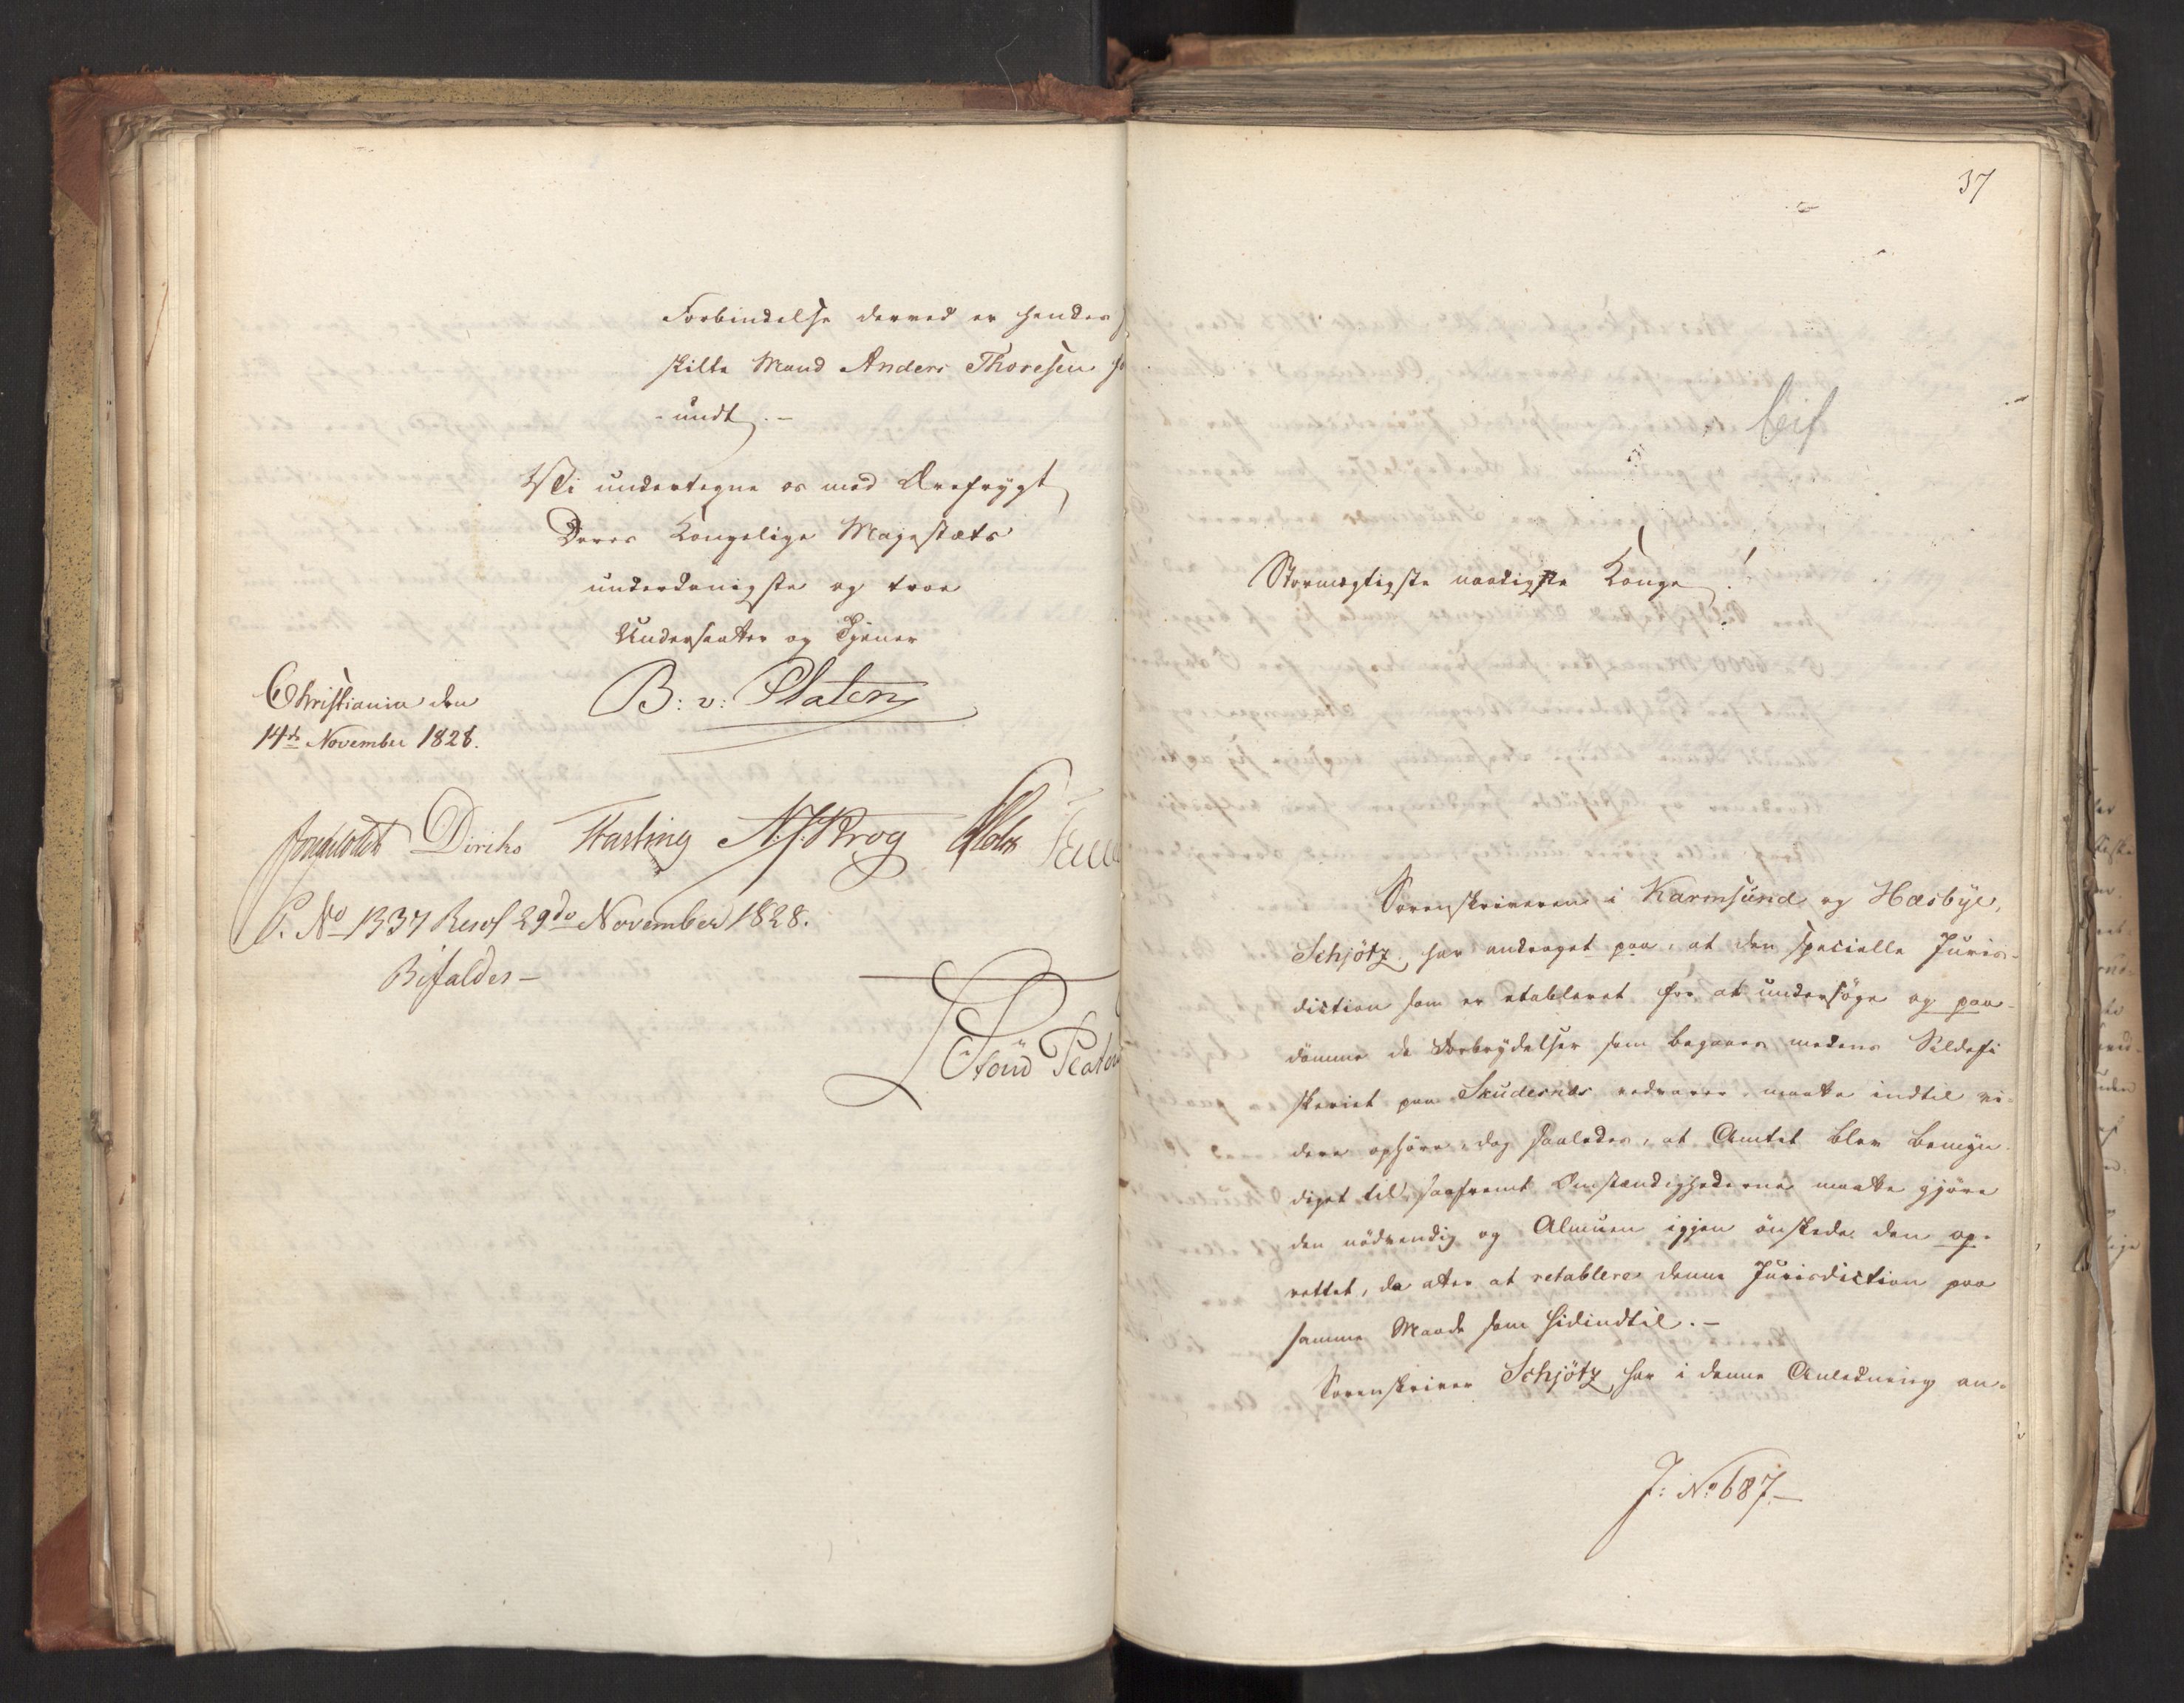 Forbindelse derved er hendes
skilte Mand Anders Thoresen
undt.-
Vi undertegne os med Ærefrygt
Deres Kongelige Majestæts
underdanigste og troe
Undersaatter og Tjener
B: v: Platen
Christiania den
14de November 1828.
Diriks Fasting Krog
P. No 1337 Resol 29de November 1828.
Bifaldes -
37
bif
Stormægtigste naadigste Konge!
Sorenskriveren i Karmsund og Hæsbye,
Schjötz har andraget paa, at den specielle Juris-
diction som er etableret for at undersöge og paa-
dömme de Forbrydelser som begaaes medens Sildefi
skeriet paa Skudesnæs vedvarer maatte indtil vi-
dere ophöre, dog saaledes, at Amtet blev bemyn-
diget til, saafremt Omstændighederne maatte gjöre
den nödvendig og Almuen igjen önskede den op-
rettet, da atter at retablere denne Jurisdiction paa
samme Maade som hidindtil.-
Sorenskriver Schjötz har i denne Anledning an-
J: No 687.-